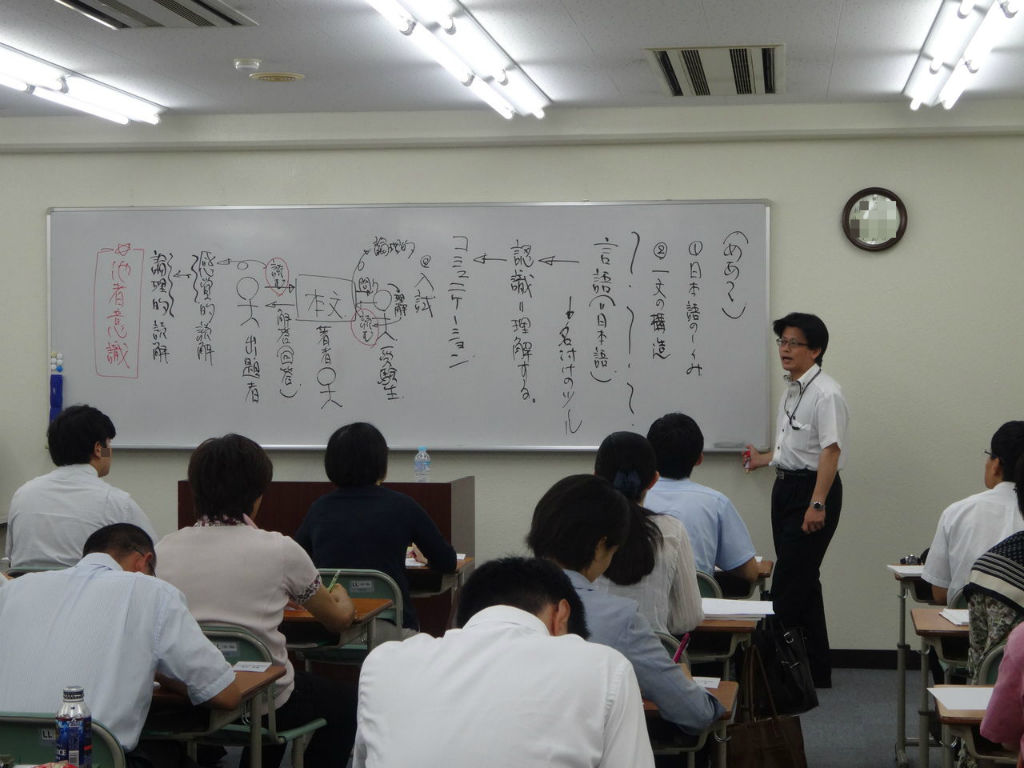 (めあて)
①日本語のしくみ
②一文の構造
言語(=日本語)
↓名付けのツール
認識=理解する。
コミュニケーション
②入試
論理的
問い
理解
読む
受験生
本文
著者
読む
解答(回答)
出題者
感覚的読解
論理的読解
他者意識
LL
LL